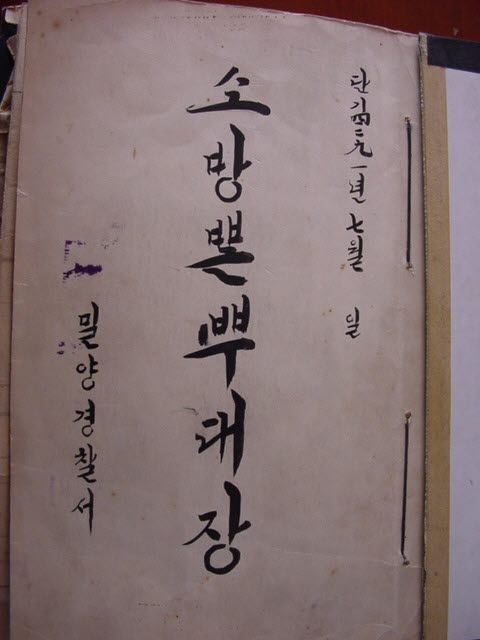 단기四二九一년 七월 일
소방뽐뿌대장
밀양경찰서